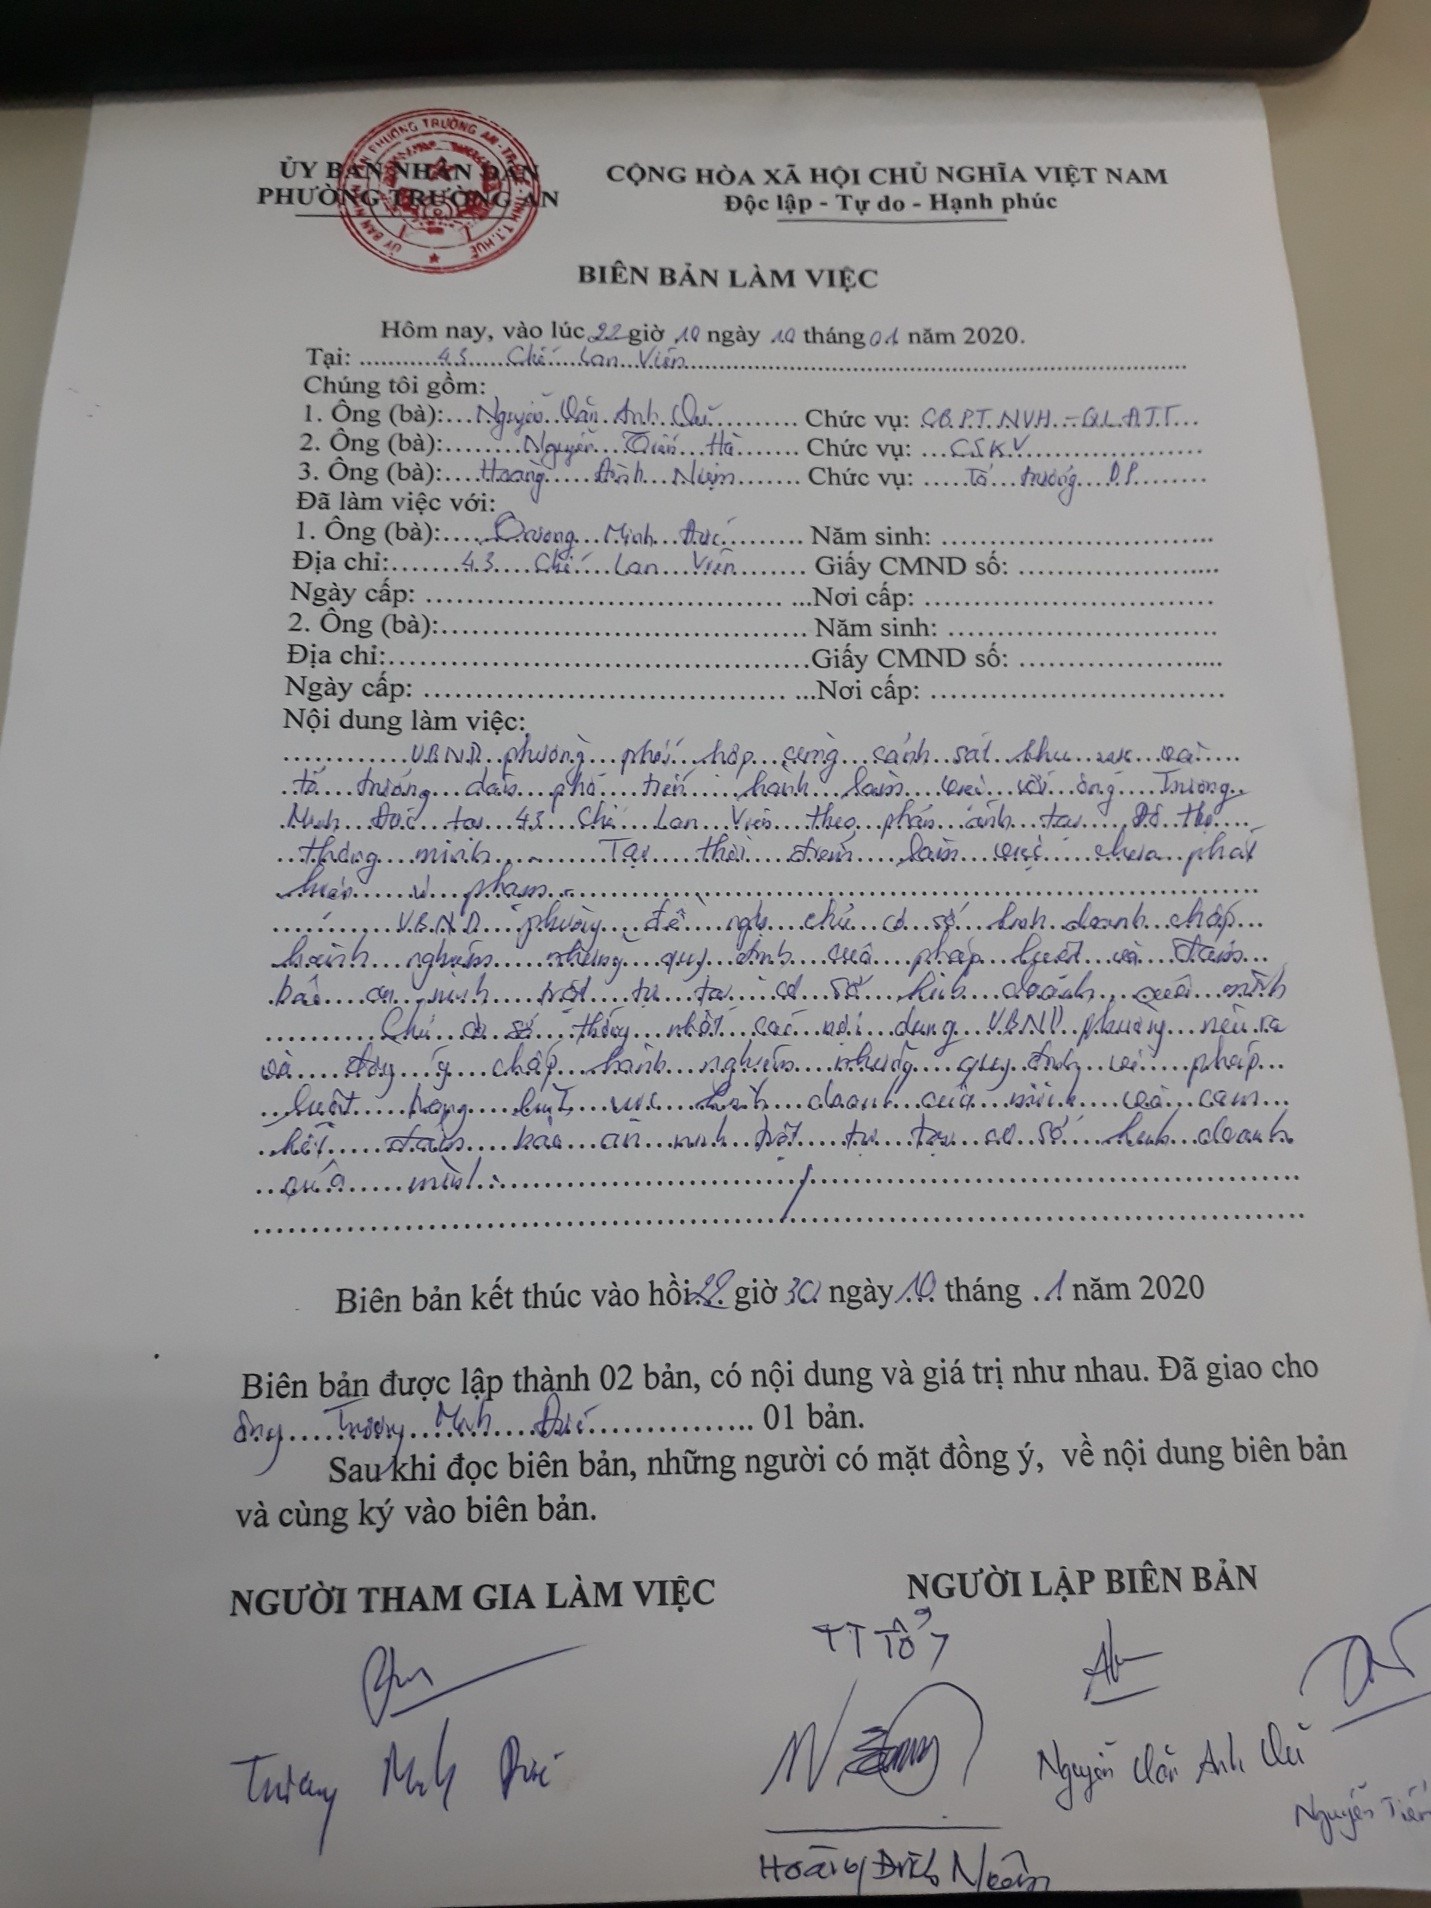 ỦY BAN NHÂN DÂN
PHƯỜNG TRƯỜNG AN
CỘNG HÒA XÃ HỘI CHỦ NGHĨA VIỆT NAM
Độc lập - Tự do - Hạnh phúc
BIÊN BẢN LÀM VIỆC
Hôm nay, vào lúc 22 giờ 10 ngày 10 tháng 01 năm 2020.
Tại: 43 Chế Lan Viên
Chúng tôi gồm:
1. Ông (bà): Nguyễn Văn Anh Vũ Chức vụ: CB.PT.NVH-QL.ATT
2. Ông (bà): Nguyễn Tiến Hà Chức vụ: CSKV
3. Ông (bà): Hoàng Đình Chức vụ: Tổ trưởng D.P
Đã làm việc với:
1. Ông (bà): Trương Minh Đức Năm sinh:
Địa chỉ: 43 Chế Lan Viên Giấy CMND số:
Ngày cấp: Nơi cấp:
2. Ông (bà): Năm sinh:
Địa chỉ: Giấy CMND số:
Ngày cấp: Nơi cấp:
Nội dung làm việc:
UBND phường phối hợp cùng cảnh sát khu vực và
tổ trưởng dân phố tiến hành làm việc với ông Trương
Minh Đức tại 43 Chế Lan Viên theo phản ánh tại Đô thị
thông minh. Tại thời điểm làm việc chưa phát
hiện vi phạm.
UBND phường đề nghị chủ cơ sở kinh doanh chấp
hành nghiêm những quy định của pháp luật và đảm
bảo an ninh trật tự tại cơ sở kinh doanh của mình
Chủ cơ sở thống nhất các nội dung UBND phường nêu ra
và đồng ý chấp hành nghiêm những quy định về pháp
luật trong lĩnh vực kinh doanh của mình và cam
kết đảm bảo an ninh trật tự tại cơ sở kinh doanh
của mình.
Biên bản kết thúc vào hồi 22 giờ 30 ngày 10 tháng 1 năm 2020
Biên bản được lập thành 02 bản, có nội dung và giá trị như nhau. Đã giao cho
ông Trương Minh Đức 01 bản.
Sau khi đọc biên bản, những người có mặt đồng ý, về nội dung biên bản
và cùng ký vào biên bản.
NGƯỜI THAM GIA LÀM VIỆC
NGƯỜI LẬP BIÊN BẢN
TT Tổ 7
Trương Minh Đức
Nguyễn Văn Anh Vũ
Nguyễn Tiến
Hoàng Đình